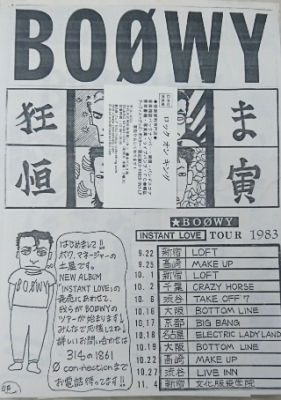 BOØWY
狂
ま
恒
寅
ロック オン キング
★BOØWY
INSTANT LOVE TOUR 1983
9.22 新宿 LOFT
9.25 高崎 MAKE UP
10.1 新宿 LOFT
10.2 千葉 CRAZY HORSE
10.6 渋谷 TAKE OFF 7
10.16 大阪 BOTTOM LINE
10.17 京都 BIG BANG
10.18 名古屋 ELECTRIC LADY LAND
10.19 大阪 BOTTOM LINE
10.22 高崎 MAKE UP
10.27 渋谷 LIVE INN
11.4 新宿 文化服装学院
はじめまして!!
ボウイ マネージャーの
土屋です。
NEW ALBUM
「INSTANT LOVE」の
発売に合わせて、
我らが BOØWYの
ツアーが始まります!
みんなで応援してね!
詳しいお問い合わせは
314の1861
Ø con-nectionまで
お電話待ってます!!
BOØWY